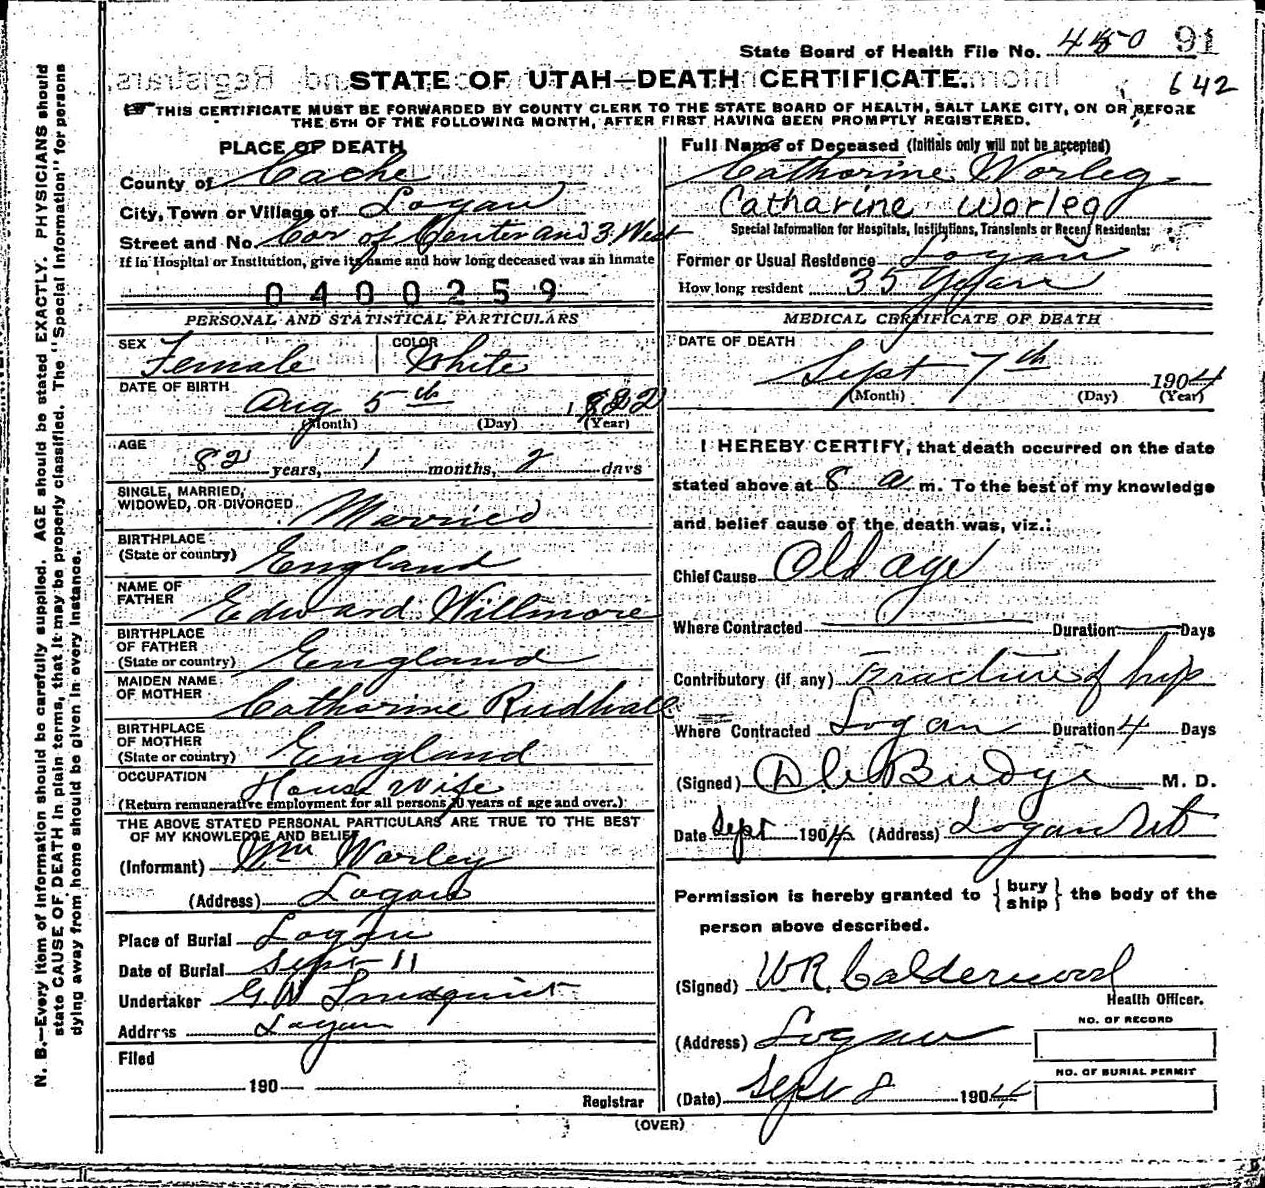 State Board of Health File No. 450 91
STATE OF UTAH—DEATH CERTIFICATE.
642
THIS CERTIFICATE MUST BE FORWARDED BY COUNTY CLERK TO THE STATE BOARD OF HEALTH, SALT LAKE CITY, ON OR BEFORE
THE 5TH OF THE FOLLOWING MONTH, AFTER FIRST HAVING BEEN PROMPTLY REGISTERED.
N. B.—Every item of information should be carefully supplied. AGE should be stated EXACTLY. PHYSICIANS should
state CAUSE OF DEATH in plain terms, that it may be properly classified. The "Special Information" for persons
dying away from home should be given in every instance.
PLACE OF DEATH
County of Cache
City, Town or Village of Logan
Street and No. Cor of Center and 3 West
If in Hospital or Institution, give its name and how long deceased was an inmate
0400259
PERSONAL AND STATISTICAL PARTICULARS
SEX Female COLOR White
DATE OF BIRTH
Aug 5th 1822
(Month) (Day) (Year)
AGE
82 years, 1 months, 2 days
SINGLE, MARRIED,
WIDOWED, OR DIVORCED Married
BIRTHPLACE
(State or country) England
NAME OF
FATHER Edward Willmore
BIRTHPLACE
OF FATHER
(State or country) England
MAIDEN NAME
OF MOTHER Catharine Rudhall
BIRTHPLACE
OF MOTHER
(State or country) England
OCCUPATION House Wife
(Return remunerative employment for all persons 10 years of age and over.)
THE ABOVE STATED PERSONAL PARTICULARS ARE TRUE TO THE BEST
OF MY KNOWLEDGE AND BELIEF
(Informant) Wm Worley
(Address) Logan
Place of Burial Logan
Date of Burial Sept 11
Undertaker G W Lindquist
Address Logan
Filed
190
Registrar
Full Name of Deceased (Initials only will not be accepted)
Catharine Worley
Catharine Worley
Special Information for Hospitals, Institutions, Transients or Recent Residents:
Former or Usual Residence Logan
How long resident 35 Years
MEDICAL CERTIFICATE OF DEATH
DATE OF DEATH
Sept 7th 1904
(Month) (Day) (Year)
I HEREBY CERTIFY, that death occurred on the date
stated above at 8 a m. To the best of my knowledge
and belief cause of the death was, viz.:
Chief Cause Old age
Where Contracted Duration Days
Contributory (if any) Fracture of hip
Where Contracted Logan Duration 4 Days
(Signed) D C Budge M. D.
Date Sept 1904 (Address) Logan Ut
Permission is hereby granted to {bury ship} the body of the
person above described.
(Signed) WR Calderwood
Health Officer.
(Address) Logan
NO. OF RECORD
NO. OF BURIAL PERMIT
(Date) Sept 8 1904
(OVER)